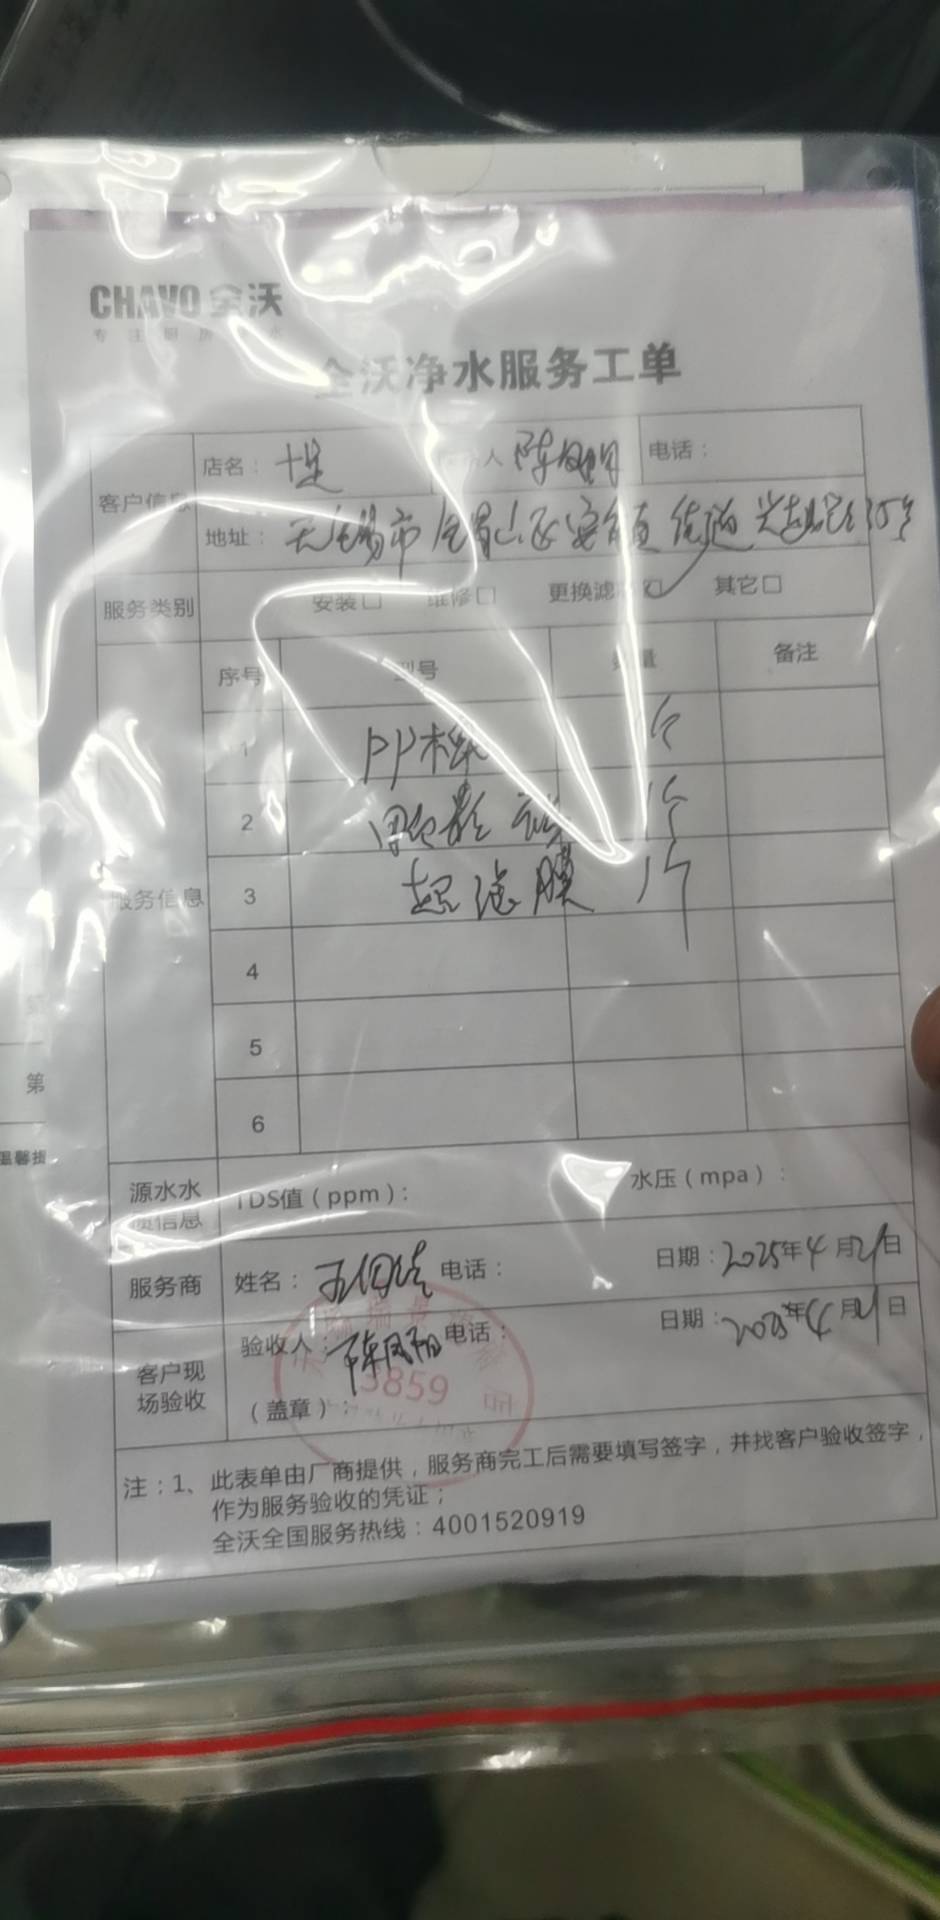 CHAVO 全沃
专注厨房净水
全沃净水服务工单
客户信息
店名：
人 陈
电话：
地址：无锡市 锡山区安镇 街道
服务类别
安装□ 维修□ 更换滤 其它□
服务信息
序号 型号 数量 备注
1 PP棉 1个
2 1个
3 超滤膜 1个
4
5
6
源水水质信息
TDS值（ppm）：
水压（mpa）：
服务商
姓名：
电话：
日期：2025年4月21日
客户现场验收
验收人：陈
电话：
日期：2025年4月21日
（盖章）：
3859
注：1、此表单由厂商提供，服务商完工后需要填写签字，并找客户验收签字，
作为服务验收的凭证；
全沃全国服务热线：4001520919
第
温馨提